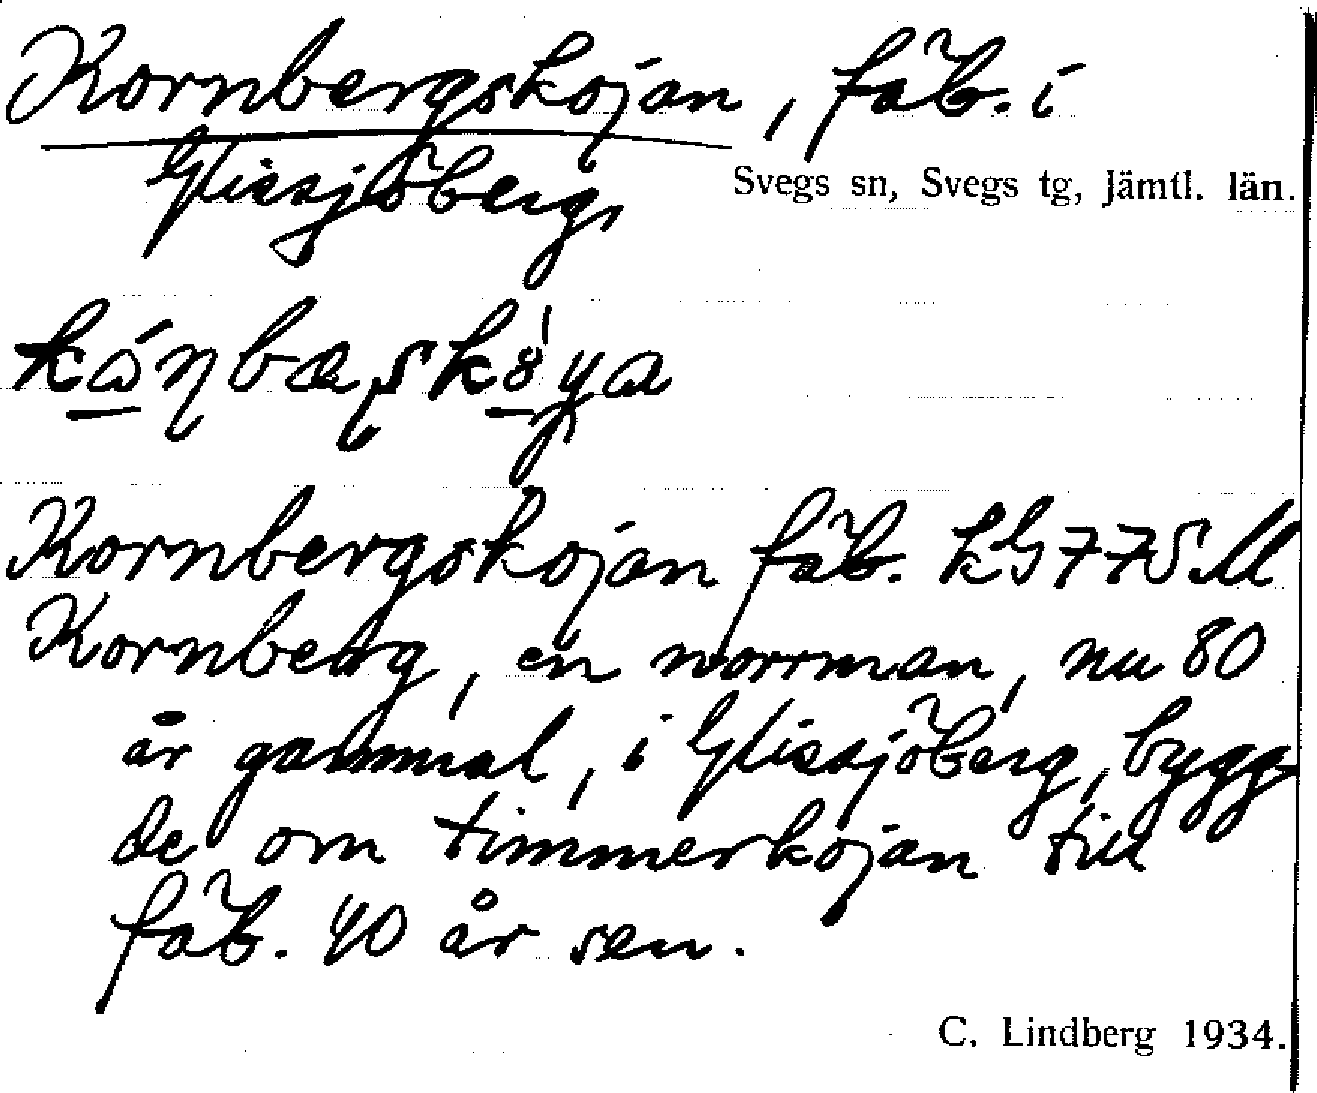 Kornbergskojan, fäb. i
Glissjöberg,
Svegs sn, Svegs tg, Jämtl. län.
Kornbergskojan fäb. kG775M
Kornberg, en norrman, nu 80
år gammal, i Glissjöberg, bygg-
de om timmerkojan till
fäb. 40 år sen.
C. Lindberg 1934.